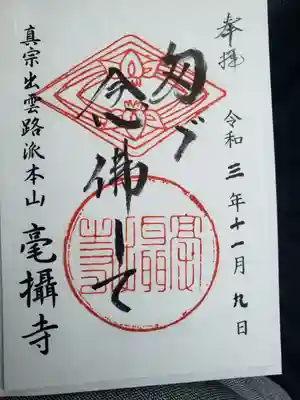 奉拝
令和三年十一月九日
で
念佛して
毫攝寺
真宗出雲路派本山
毫攝寺